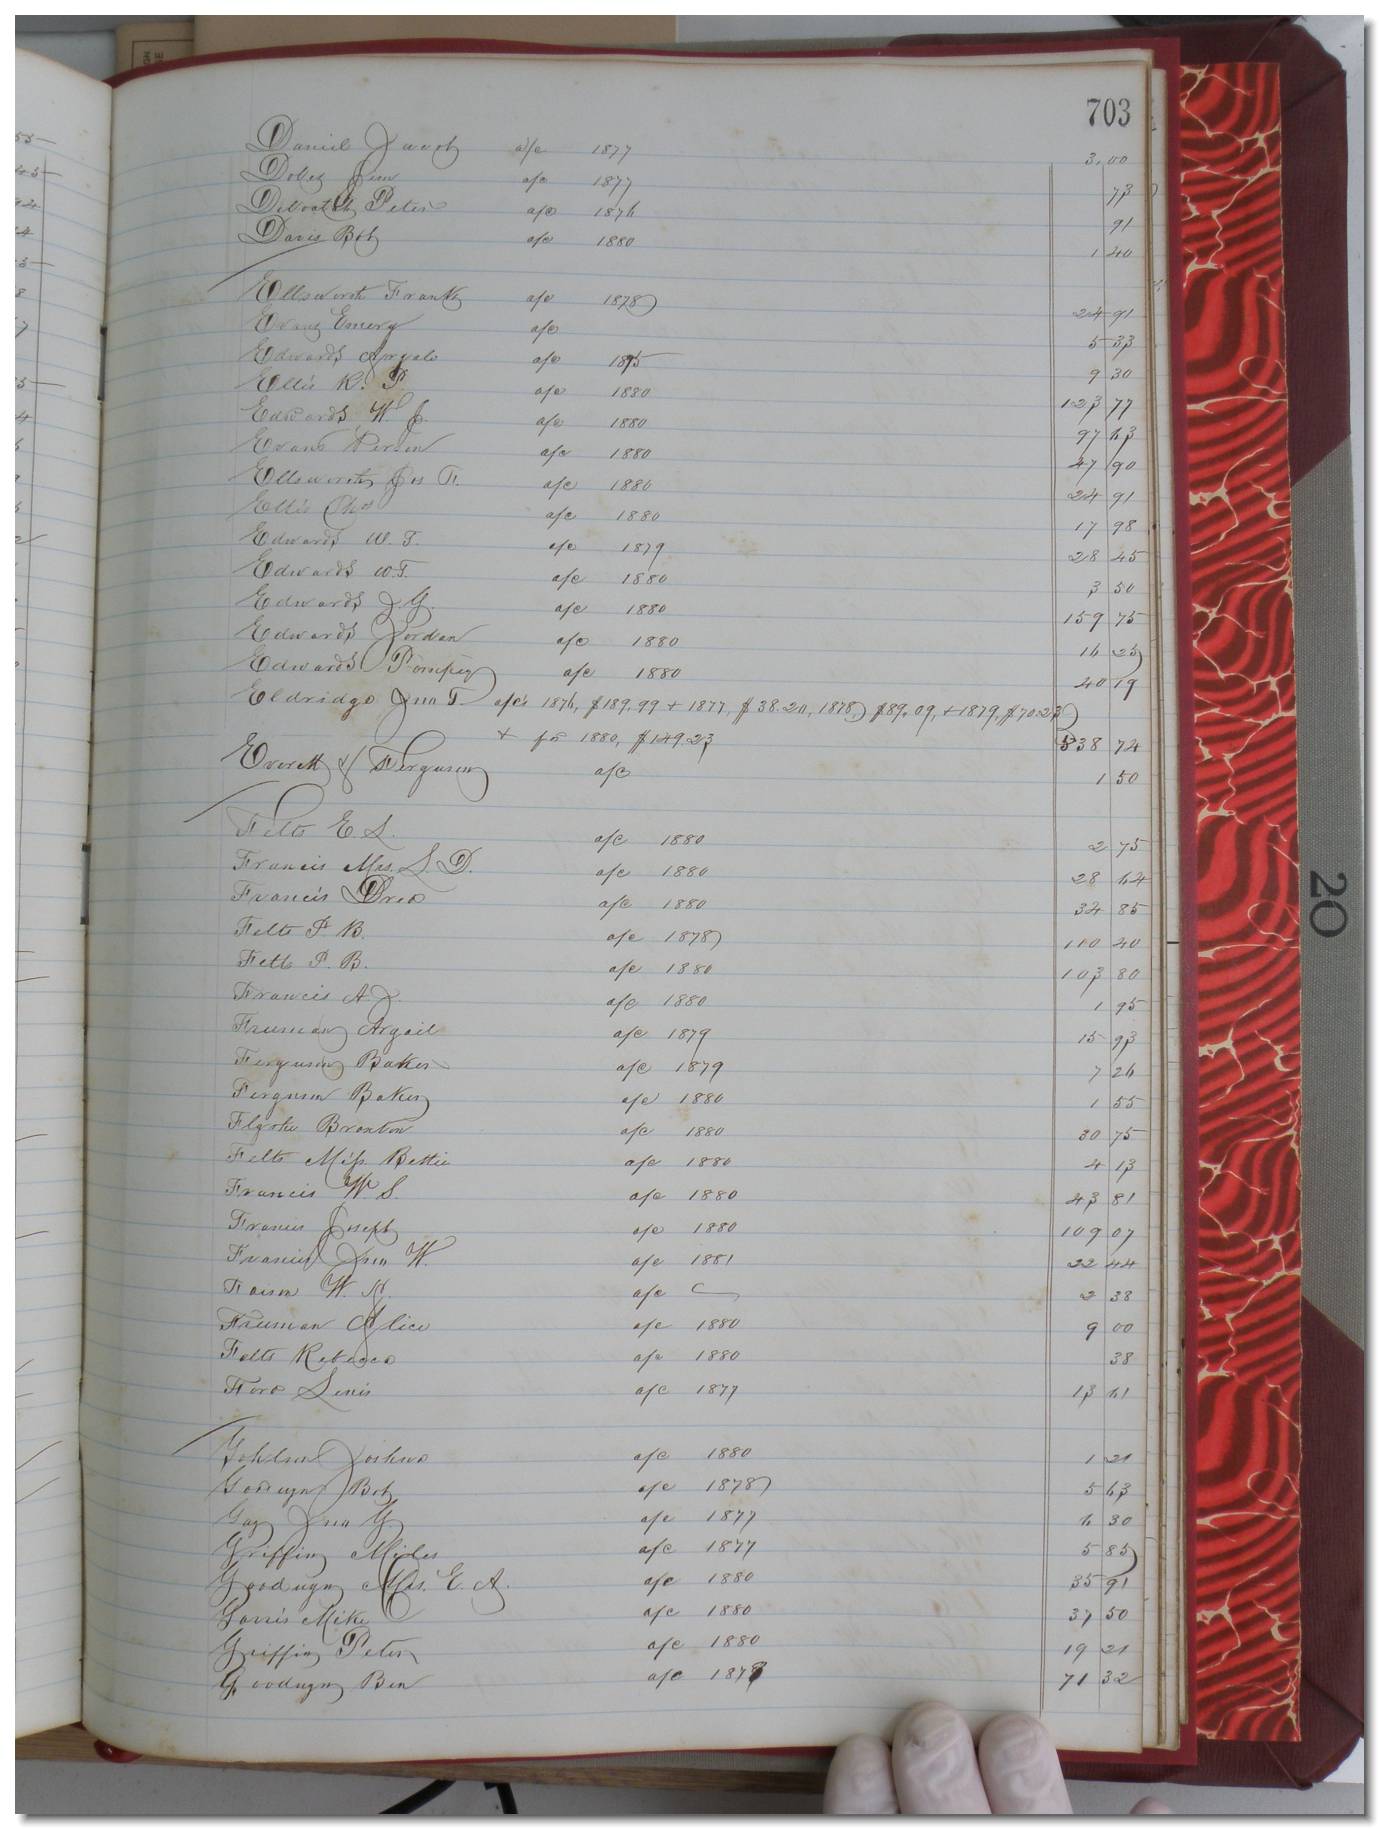 703
Daniel Jacob a/c 1877 3.00
Doles Jim a/c 1877 73
Peter a/c 1876 91
Davis Bob a/c 1880 1 40
Ellsworth Frank a/c 1878 24 91
Evans Emery a/c 5 33
Edwards a/c 1875 9 30
Ellis R. P. a/c 1880 123 77
Edwards W. J. a/c 1880 97 63
Evans a/c 1880 47 90
Ellsworth Jos F. a/c 1880 24 91
Ellis Chas a/c 1880 17 98
Edwards W. T. a/c 1879 28 45
Edwards W. T. a/c 1880 3 50
Edwards J. G. a/c 1880 159 75
Edwards Jordan a/c 1880 16 25
Edwards Pompey a/c 1880 40 19
Eldridge Jno T. a/cs 1876, $189.99 + 1877, $38.20, 1878, $89.09, + 1879, $70.23
+ for 1880, $149.23 538 74
Everett & Ferguson a/c 1 50
Felts E. S. a/c 1880 2 75
Francis Mrs. S. D. a/c 1880 28 64
Francis Dred a/c 1880 34 85
Felts P. B. a/c 1878 110 40
Felts P. B. a/c 1880 103 80
Francis A. J. a/c 1880 1 95
Freeman Argail a/c 1879 15 93
Ferguson Baker a/c 1879 7 26
Ferguson Baker a/c 1880 1 55
Flythe Branton a/c 1880 30 75
Felts Miss Bettie a/c 1880 4 13
Francis W. S. a/c 1880 43 81
Francis Joseph a/c 1880 109 07
Francis Jno W. a/c 1881 22 44
Faison W. H. a/c 2 38
Freeman Alice a/c 1880 9 00
Felts Rebecca a/c 1880 38
Ford Lewis a/c 1877 13 61
Joshua a/c 1880 1 21
Goodwyn Bob a/c 1878 5 63
Gay Jno G. a/c 1877 6 30
Griffin Miles a/c 1877 5 85
Goodwyn Mrs. E. A. a/c 1880 35 91
Garris Mike a/c 1880 37 50
Griffin Peter a/c 1880 19 21
Goodwyn Ben a/c 1878 71 32
20